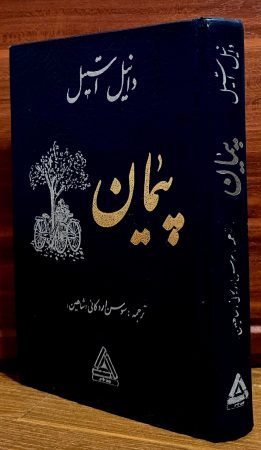 دانیل استیل
پیمان
ترجمه: سوسن اردکانی (شاهین)
دانیل استیل
پیمان
ترجمه: سوسن اردکانی (شاهین)